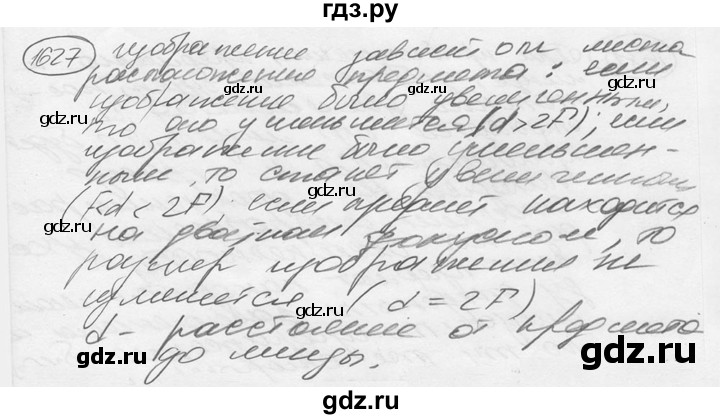 гдз.ру
1627 изображение зависит от места
расположения предмета: если
изображение было увеличенным,
то оно уменьшается (d > 2F); если
изображение было уменьшен-
ным, то станет увеличенным
(F < d < 2F) если предмет находится
на двойном фокусном, то
размер изображения не
изменится (d = 2F)
d - расстояние от предмета
до линзы.
gdz.ru
gdz.ru
gdz.ru
gdz.ru
gdz.ru
gdz.ru
gdz.ru
gdz.ru
gdz.ru
gdz.ru
gdz.ru
gdz.ru